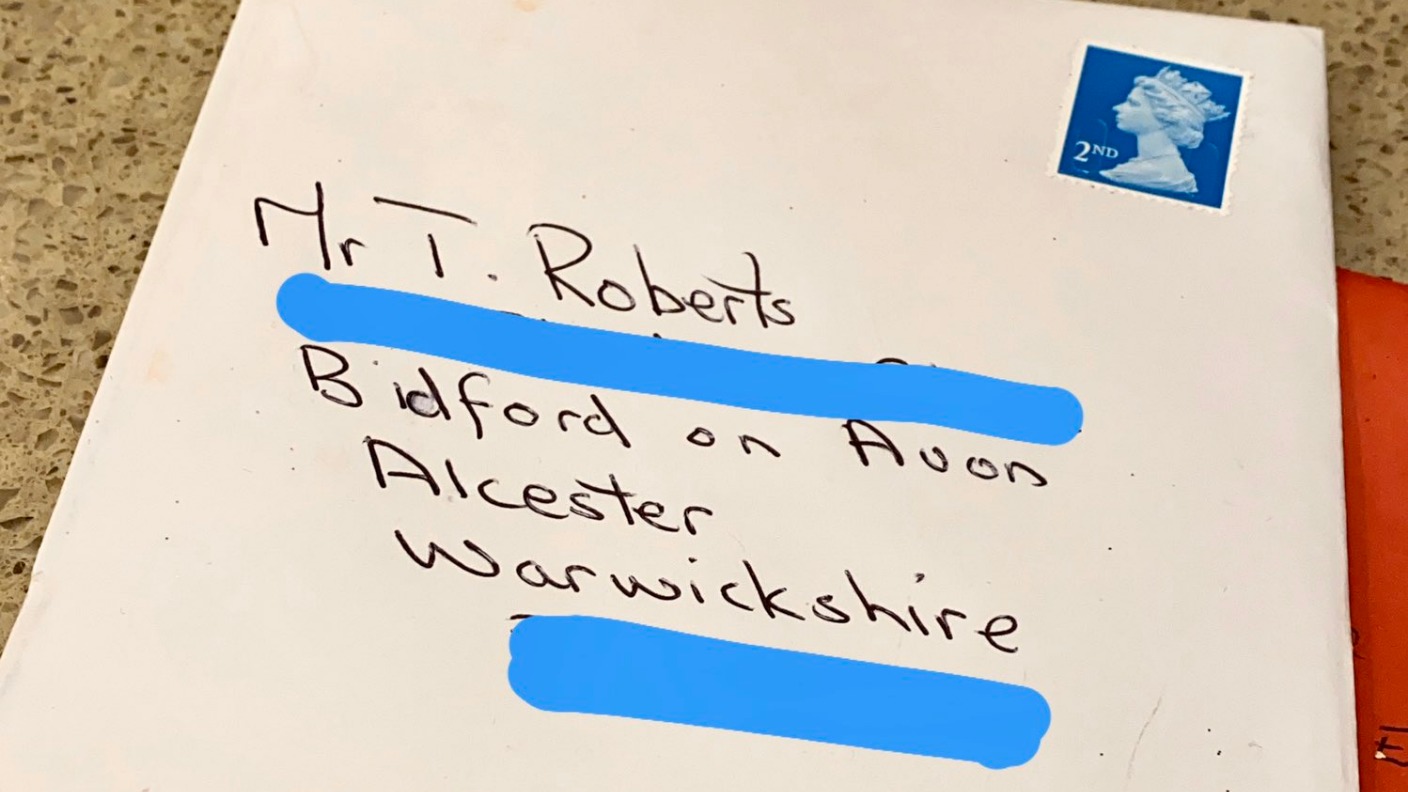 2ND
Mr T. Roberts
Bidford on Avon
Alcester
Warwickshire